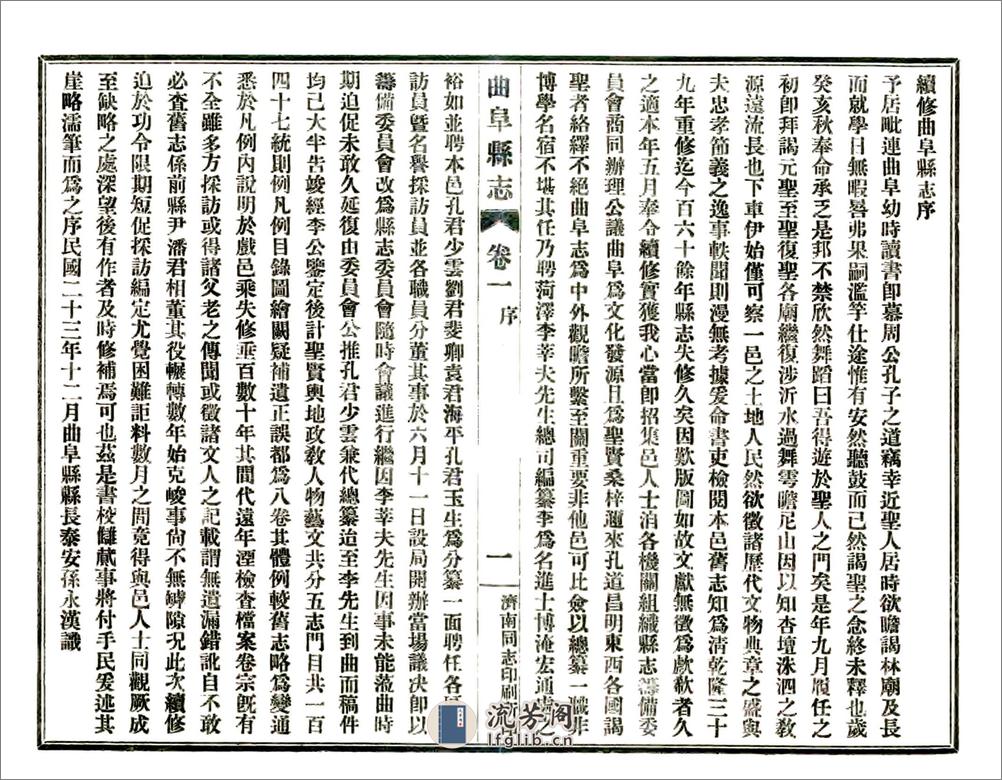 續修曲阜縣志序
予居毗連曲阜幼時讀書即慕周公孔子之道竊幸近聖人居時欲瞻謁林廟及長
而就學日無暇晷弗果嗣濫竽仕途惟有安然聽鼓而已然謁聖之念終未釋也歲
癸亥秋奉命承乏是邦不禁欣然舞蹈曰吾得遊於聖人之門矣是年九月履任之
初即拜謁元聖至聖復聖各廟繼復涉沂水過舞雩瞻尼山因以知杏壇洙泗之教
源遠流長也下車伊始僅可察一邑之土地人民然欲徵諸歷代文物典章之盛與
夫忠孝節義之逸事軼聞則漫無考據爰命書吏檢閱本邑舊志知爲清乾隆三十
九年重修迄今百六十餘年縣志失修久矣因歎版圖如故文獻無徵爲歉欷者久
之適本年五月奉令續修實獲我心當即招集邑人士洎各機關組織縣志籌備委
員會商同辦理公議曲阜爲文化發源且爲聖賢桑梓邇來孔道昌明東西各國謁
聖者絡繹不絕曲阜志爲中外觀瞻所繫至關重要非他邑可比僉以總纂一職非
博學名宿不堪其任乃聘菏澤李莘夫先生總司編纂李爲名進士博淹宏通
曲阜縣志
卷一
序
一
濟南同志印刷
裕如並聘本邑孔君少雲劉君斐卿袁君海平孔君玉生爲分纂一面聘任各
訪員暨名譽採訪員並各職員分董其事於六月十一日設局開辦當場議决即以
籌備委員會改爲縣志委員會隨時會議進行繼因李莘夫先生因事未能蒞曲時
期迫促未敢久延復由委員會公推孔君少雲兼代總纂迨至李先生到曲而稿件
均已大半告竣經李公鑒定後計聖賢輿地政教人物藝文共分五志門目共一百
四十七統則例凡例目錄圖繪闕疑補遺正誤都爲八卷其體例較舊志略爲變通
悉於凡例內說明於戲邑乘失修垂百數十年其間代遠年湮檢查檔案卷宗旣有
不全雖多方採訪或得諸父老之傳聞或徵諸文人之記載謂無遺漏錯訛自不敢
必查舊志係前縣尹潘君相董其役輾轉數年始克峻事尙不無罅隙況此次續修
迫於功令限期短促採訪編定尤覺困難詎料數月之間竟得與邑人士同觀厥成
至缺略之處深望後有作者及時修補焉可也茲是書校讎蕆事將付手民爰述其
崖略濡筆而爲之序民國二十三年十二月曲阜縣縣長泰安孫永漢識
流芳閣
lfglib.cn